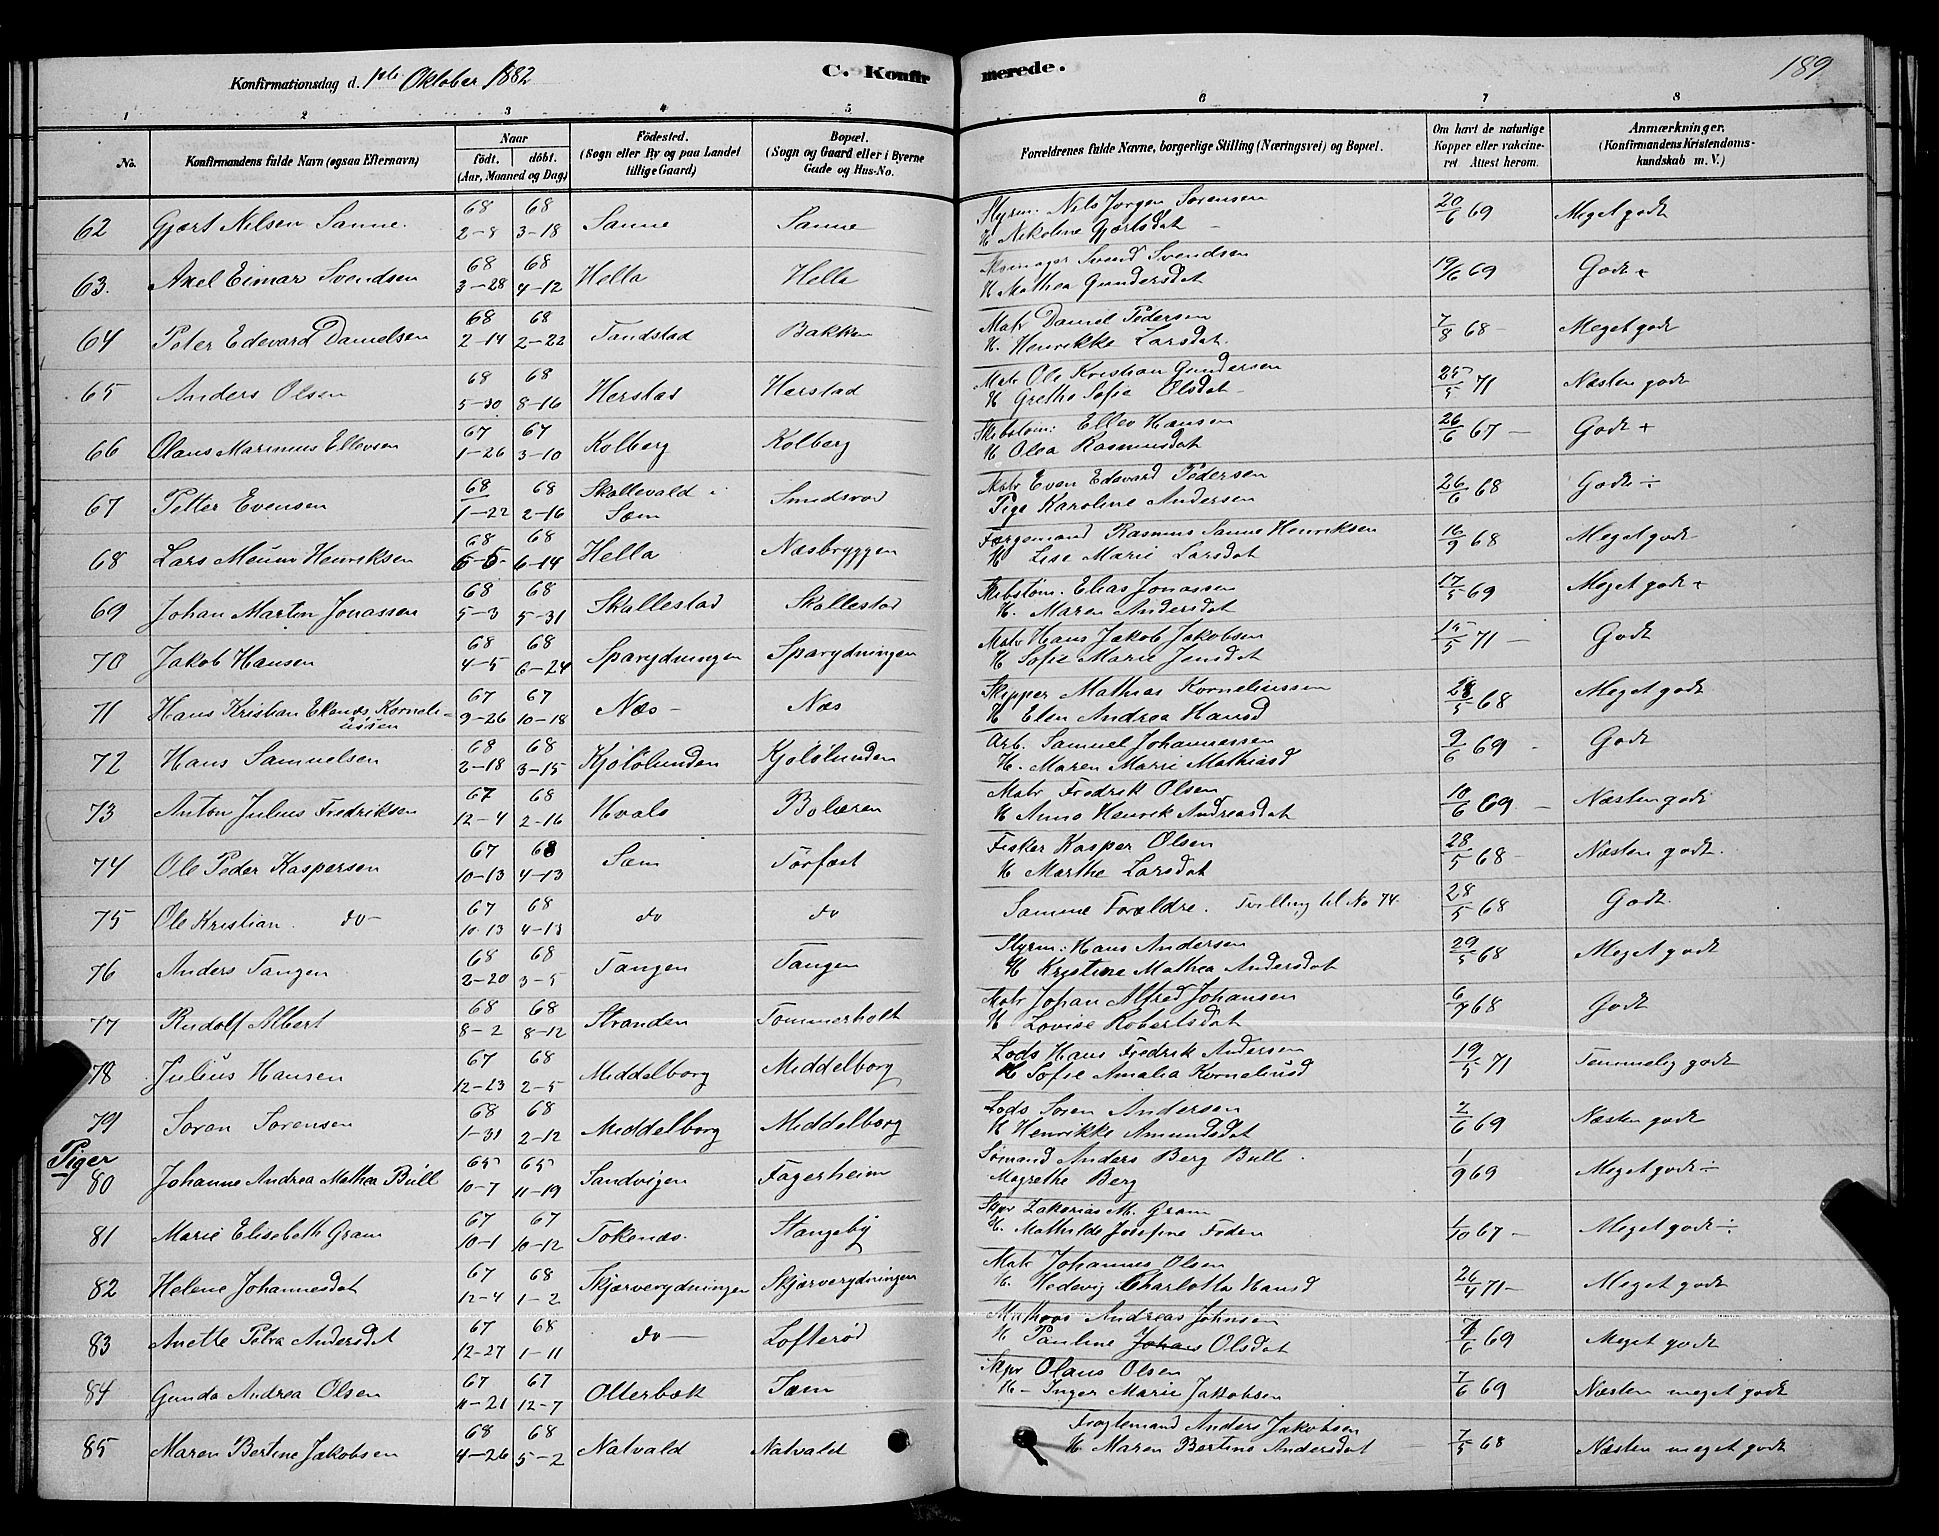 Konfirmationsdag d. 1ste Oktober 1882
C. Konfirmerede.
189
1 2 3 4 5 6 7 8
No. Konfirmandens fulde Navn (ogsaa Efternavn) Naar født. døbt. (Aar, Maaned og Dag) Fødested. (Sogn eller By og paa Landet tillige Gaard) Bopæl. (Sogn og Gaard eller i Byerne Gade og Hus-No. Forældrenes fulde Navne, borgerlige Stilling (Næringsvei) og Bopæl. Om havt de naturlige Kopper eller vakcineret Attest herom. Anmærkninger. (Konfirmandens Kristendomskundskab m. V.)
62 Gjært Nilsen Sanne 68 2-8 68 3-18 Sanne Sanne Styrm. Nils Jørgen Sørensen H Nikoline Gjærtsdat 20/6 69 Meget godt
63. Axel Eimar Svendsen 68 3-28 68 4-12 Hella Hella Skomager Svend Svendsen H Mathea Gundersdat 19/6 69 Godt +
64 Peter Edevard Danielsen 68 2-14 68 2-22 Tandstad Bakken Matr Daniel Pedersen H. Henrikke Larsdat. 7/8 68 - Meget godt
65 Anders Olsen 68 5-30 68 8-16 Herstad Herstad Matr Ole Kristian Gundersen H Grethe Sofie Olsdat - 25/5 71 Næsten godt
66 Olaus Marinius Ellevsen 67 1-26 67 3-10 Kolberg Kolberg Skibstøm: Ellev Hansen H Olea Rasmusdat 26/6 67 - Godt +
67 Petter Evensen 68 1-22 68 2-16 Skallevald i Sæm Smidsrød Matr Even Edevard Pedersen Pige Karoline Andersen 26/6 68 Godt ÷
68 Lars Meum Henriksen 68 5-5 68 6-14 Hella Næsbryggen Færgemand Rasmus Sanne Henriksen H Lise Marie Larsdat 16/9 68 Meget godt
69 Johan Martin Jonassen 68 5-3 68 5-31 Skallestad Skallestad Skibstøm. Elias Jonassen H. Maren Andersdat 17/5 69 Meget godt +
70 Jakob Hansen 68 4-5 68 6-24 Sparydningen Sparydningen Matr Hans Jakob Jakobsen H Sofie Marie Jensdat 15/5 71 - Godt
71 Hans Kristian Korneliussen 67 9-26 67 10-18 Næs - Næs Skipper Mathias Korneliussen H Elen Andrea Hansd 28/5 68 Meget godt
72 Hans Samuelsen 68 2-18 68 3-15 Kjølølunden Kjølølunden Arb. Samuel Johannessen H. Maren Marie Mathiasd 9/6 69 - Godt
73 Anton Julius Fredriksen 67 12-4 68 2-16 Hvals Bolæren Matr Fredrik Olsen H Anne Henrik Andreasdat 10/6 69 - Næsten godt
74 Ole Peder Kaspersen 67 10-13 68 4-13 Sæm Torfæst Fisker Kasper Olsen H Marthe Larsdat 28/5 68 - Næsten godt.
75 Ole Kristian. do - 67 10-13 68 4-13 do do Samme Forældre. Tvilling til No 74. 28/5 68 Godt.
76 Anders Tangen 68 2-20 68 3-5 Tangen Tangen Styrm: Hans Andersen H Kristine Mathea Andersdat 29/5 68 Meget godt
77 Rudolf Albert 68 8-2 68 8-12 Stranden Tommerholt Matr Johan Alfred Johansen H Lovise Robertsdat 68 Godt
78 Julius Hansen 67 12-23 68 2-5 Middelborg Middelborg Lods Hans Fredrik Andersen H Sofie Amalia Korneliusd 19/5 71 Temmelig godt
79 Søren Sørensen 68 1-31 68 2-12 Middelborg Middelborg Lods Søren Andersen H Henrikke Amundsdat 2/6 69 Næsten godt
Piger
80 Johanne Andrea Mathea Bull 65 10-7 65 11-19 Sandvigen Fagerheim Sømand Anders Berg Bull. Magrethe Berg 1/9 69 Meget godt ÷
81 Marie Elisebeth Gram 67 10-1 67 10-12 Tokenæs. Stangeby Skpr Zakarias M. Gram H. Mathilde Josefine Foden 1/10 67 - Meget godt ÷
82 Helene Johannesdat 67 12-4 68 1-2 Skjærverydningen Skjærverydningen Matr Johannes Olsen H. Hedevig Charlotta Hansd 26/4 71 - Meget godt
83 Anette Petra Andersdat 67 12-27 68 1-11 do - Lofterød Mathros Andreas Johnsen H Pauline Johans Olsdat 7/6 69 Meget godt
84 Gunda Andrea Olsen 67 11-21 67 12-7 Otterbæk Sæm Skpr Olaus Olsen H - Inger Marie Jakobsen 7/6 69 Næsten meget godt
85 Maren Bertine Jakobsen 68 4-26 68 5-2 Natvald Natvald Anders Jakobsen H Maren Bertine Andersdat 7/5 68 Næsten meget godt